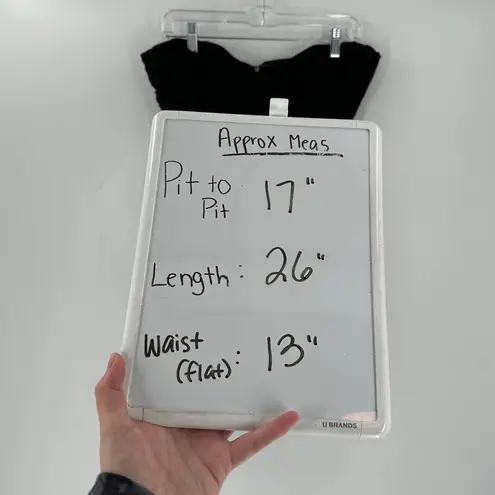 Approx Meas
Pit to Pit 17"
Length: 26"
Waist (flat): 13"
U BRANDS